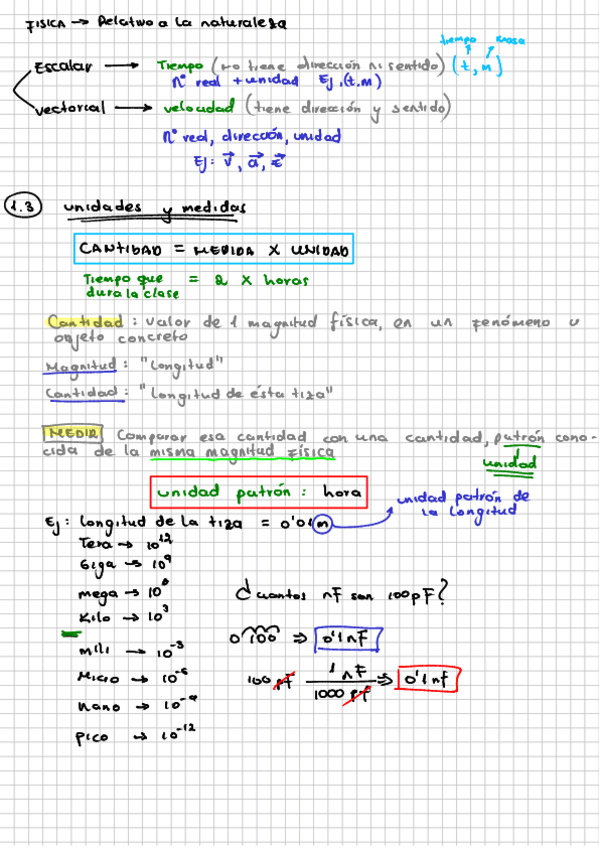 FISICA → Relativo a la naturaleza
tiempo masa
Escalar → Tiempo (no tiene dirección ni sentido) (t, m)
nº real + unidad Ej. (t.m)
vectorial → velocidad (tiene dirección y sentido)
nº real, dirección, unidad
Ej: v⃗, a⃗, ε⃗
1.3 unidades y medidas
CANTIDAD = MEDIDA X UNIDAD
Tiempo que = 2 X horas
dura la clase
Cantidad: valor de 1 magnitud física, en un fenómeno u
objeto concreto
Magnitud: "Longitud"
Cantidad: "Longitud de ésta tiza"
MEDIR Comparar esa cantidad con una cantidad, patrón cono-
cida de la misma magnitud física
unidad
unidad patrón: hora
unidad patrón de
la longitud
Ej: longitud de la tiza = 0'01 m
Tera → 10¹²
Giga → 10⁹
mega → 10⁶
Kilo → 10³
mili → 10⁻³
Micro → 10⁻⁶
nano → 10⁻⁹
pico → 10⁻¹²
¿cuantos nF son 100pF?
0'100 ⇒ 0'1 nF
100 pF 1 nF / 1000 pF ⇒ 0'1 nf